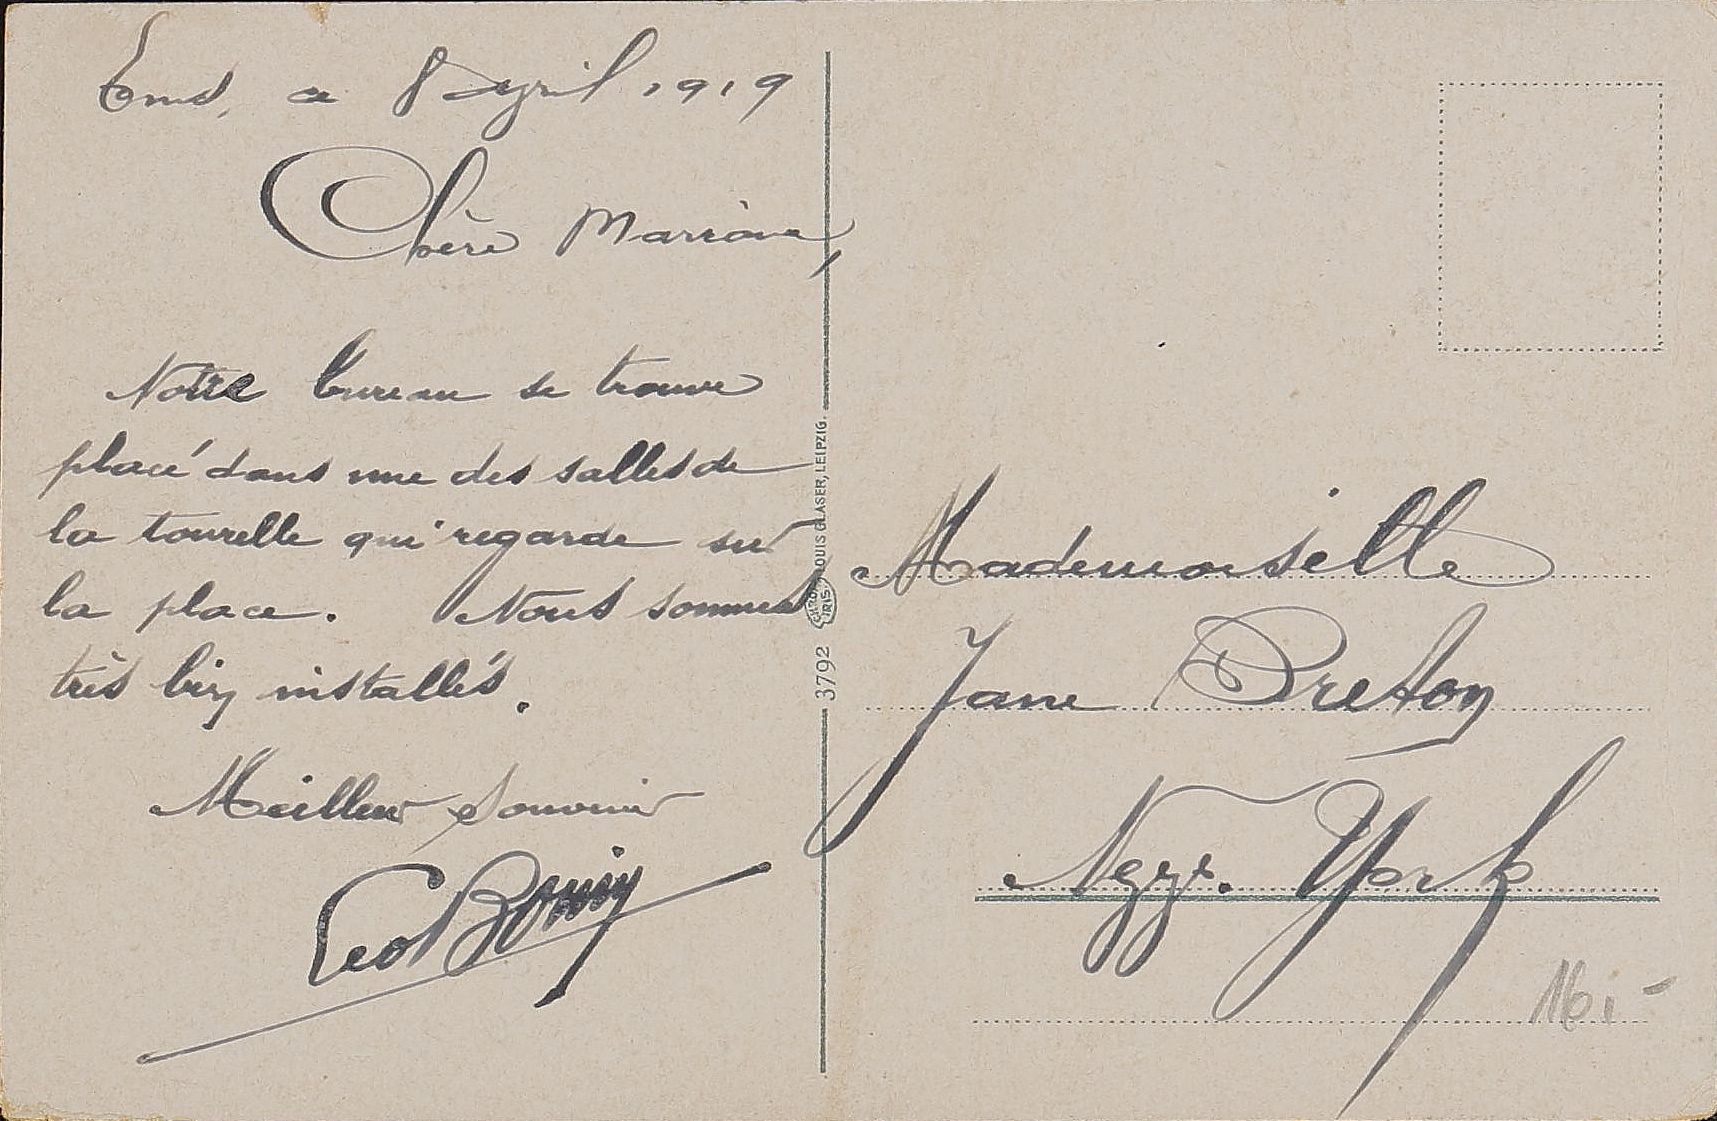 Ems, ce 8 April 1919
Chère Marraine,
Notre bureau se trouve
placé dans une des salles de
la tourelle qui regarde sur
la place. Nous sommes
très bien installés.
Meilleur souvenir
Leo Bouin
3792 LOUIS GLASER, LEIPZIG.
Mademoiselle
Jane Breton
York
16